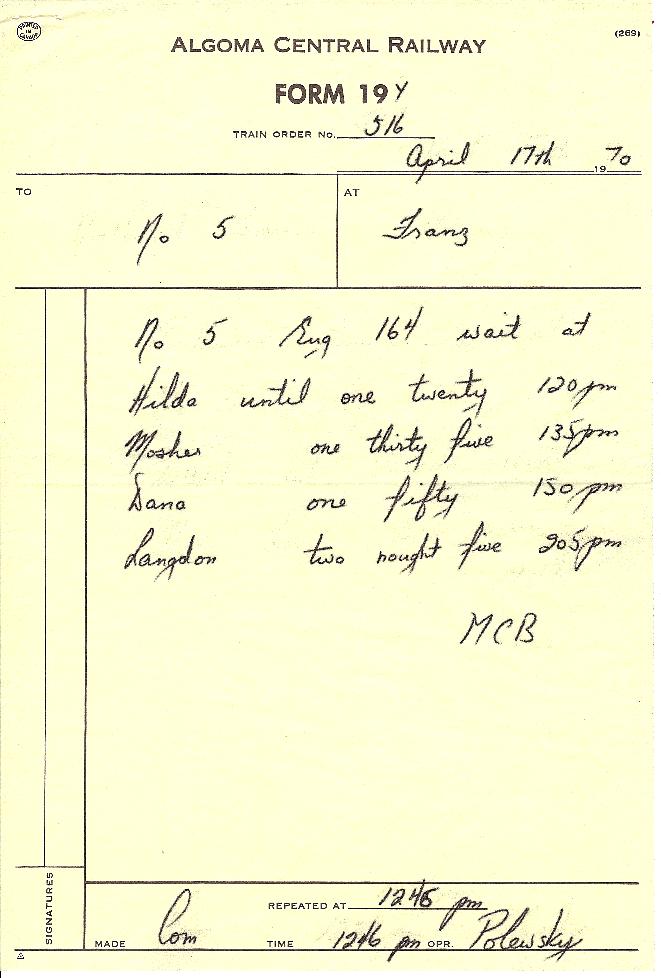 PRINTED IN CANADA
(269)
ALGOMA CENTRAL RAILWAY
FORM 19 Y
TRAIN ORDER No. 516
April 17th 1970
TO No 5
AT Franz
No 5 Eng 164 wait at
Hilda until one twenty 120 pm
Mosher one thirty five 135 pm
Dana one fifty 150 pm
Langdon two nought five 205 pm
MCB
SIGNATURES
REPEATED AT 1246 pm
MADE Com TIME 1246 pm OPR. Polewsky